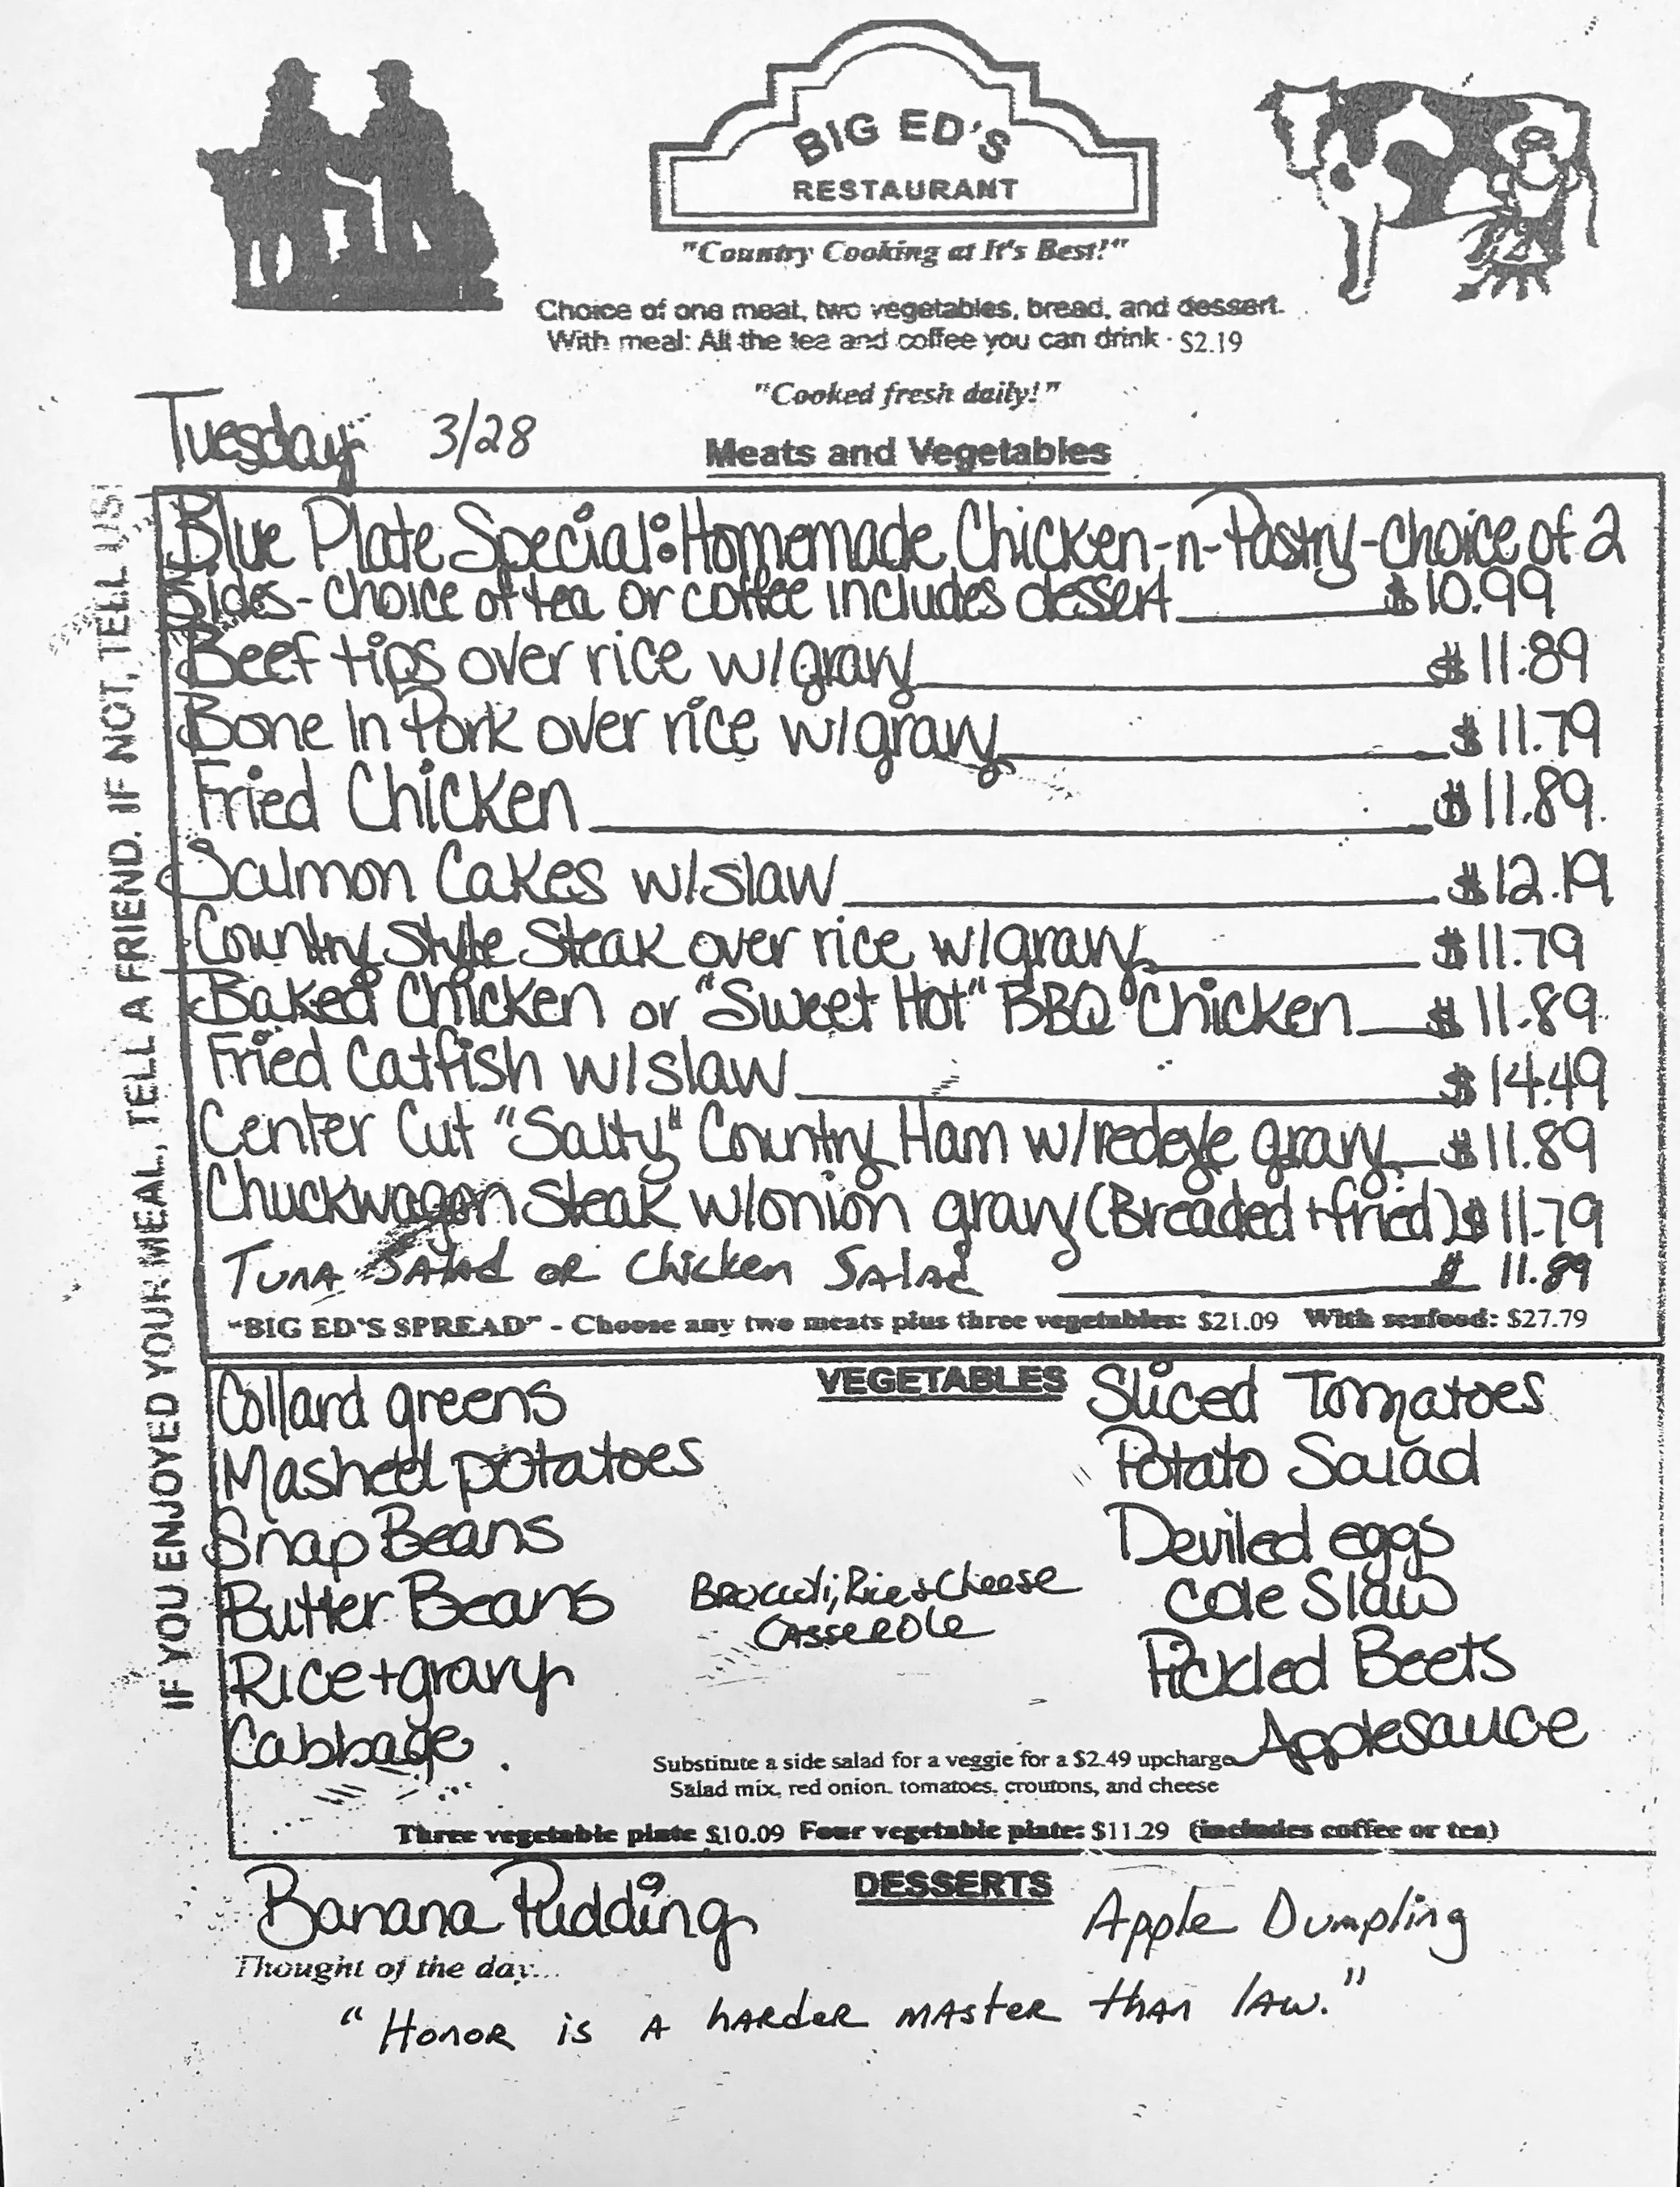 BIG ED'S
RESTAURANT
"Country Cooking at It's Best!"
Choice of one meat, two vegetables, bread, and dessert.
With meal: All the tea and coffee you can drink - $2.19
"Cooked fresh daily!"
Tuesday 3/28
Meats and Vegetables
Blue Plate Special: Homemade Chicken-n-Pastry-choice of 2
Sides- choice of tea or coffee includes dessert $10.99
Beef tips over rice w/gravy $11.89
Bone In Pork over rice w/gravy $11.79
Fried Chicken $11.89
Salmon Cakes w/slaw $12.19
Country Style Steak over rice w/gravy $11.79
Baked Chicken or "Sweet Hot" BBQ Chicken $11.89
Fried Catfish w/slaw $14.49
Center Cut "Salty" Country Ham w/redeye gravy $11.89
Chuckwagon Steak w/onion gravy (Breaded + fried) $11.79
Tuna Salad or Chicken Salad $ 11.89
"BIG ED'S SPREAD" - Choose any two meats plus three vegetables: $21.09 With seafood: $27.79
IF YOU ENJOYED YOUR MEAL, TELL A FRIEND. IF NOT, TELL US!
VEGETABLES
Collard greens
Mashed potatoes
Snap Beans
Butter Beans
Rice + gravy
Cabbage
Broccoli, Rice & Cheese
Casserole
Sliced Tomatoes
Potato Salad
Deviled eggs
Cole Slaw
Pickled Beets
Applesauce
Substitute a side salad for a veggie for a $2.49 upcharge
Salad mix, red onion, tomatoes, croutons, and cheese
Three vegetable plate $10.09 Four vegetable plate: $11.29 (includes coffee or tea)
DESSERTS
Banana Pudding Apple Dumpling
Thought of the day...
"Honor is a harder master than law."